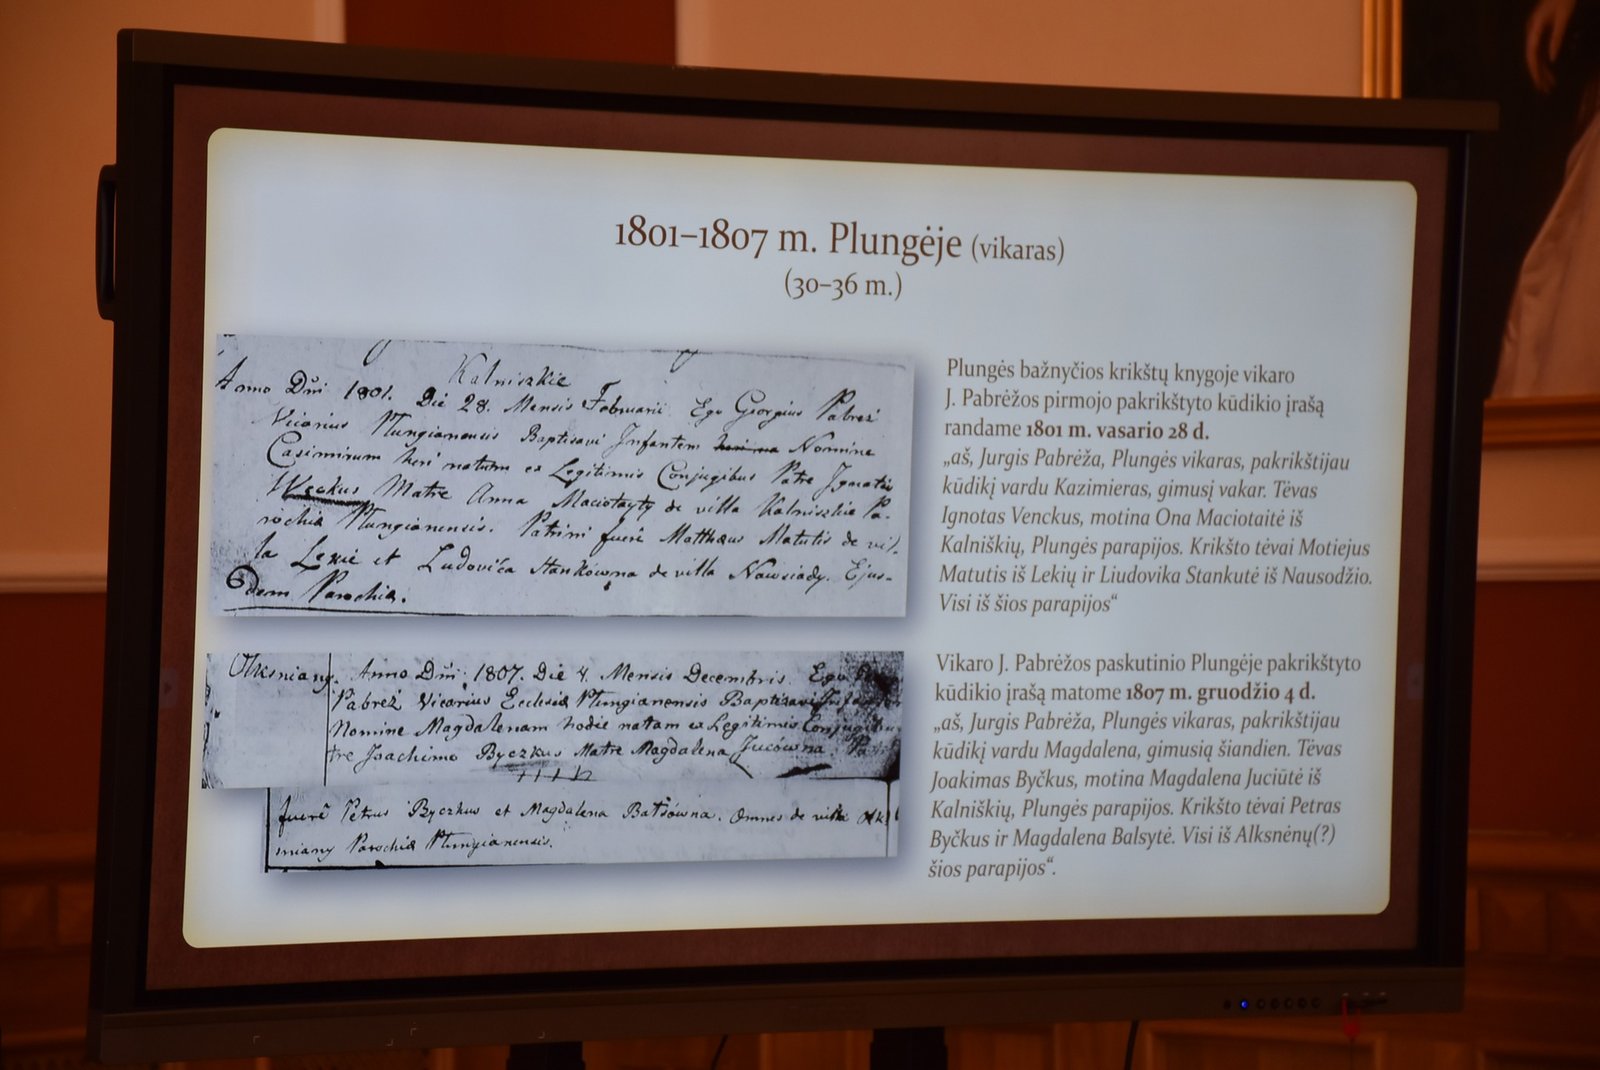 1801–1807 m. Plungėje (vikaras)
(30–36 m.)
Kalniszkie
Anno Dñi 1801. Die 28. Mensis Februarii Ego Georgius Pabreż
Vicarius Plungianensis Baptisavi Infantem Nomine
Casimirum heri natum ex Legitimis Conjugibus Patre Ignatio
Węckus Matre Anna Maciotayty de villa Kalniszkie Pa-
rochia Plungianensis. Patrini fuere Matthaus Matutis de vil-
la Lekie et Ludovica Stankowna de villa Nawsiady. Ejus-
dem Parochia.
Plungės bažnyčios krikštų knygoje vikaro
J. Pabrėžos pirmojo pakrikštyto kūdikio įrašą
randame 1801 m. vasario 28 d.
„aš, Jurgis Pabrėža, Plungės vikaras, pakrikštijau
kūdikį vardu Kazimieras, gimusį vakar. Tėvas
Ignotas Venckus, motina Ona Maciotaitė iš
Kalniškių, Plungės parapijos. Krikšto tėvai Motiejus
Matutis iš Lekių ir Liudovika Stankutė iš Nausodžio.
Visi iš šios parapijos“
Olksniany. Anno Dñi 1807. Die 4. Mensis Decembris. Ego
Pabreż Vicarius Ecclesia Plungianensis Baptisavi
Nomine Magdalenam hodie natam ex Legitimis
tre Joachimo Byczkus Matre Magdalena Jucówna.
fuere Petrus Byczkus et Magdalena Balsówna. Omnes de villa
miany Parochia Plungianensis.
Vikaro J. Pabrėžos paskutinio Plungėje pakrikštyto
kūdikio įrašą matome 1807 m. gruodžio 4 d.
„aš, Jurgis Pabrėža, Plungės vikaras, pakrikštijau
kūdikį vardu Magdalena, gimusią šiandien. Tėvas
Joakimas Byčkus, motina Magdalena Juciūtė iš
Kalniškių, Plungės parapijos. Krikšto tėvai Petras
Byčkus ir Magdalena Balsytė. Visi iš Alksnėnų(?)
šios parapijos“.